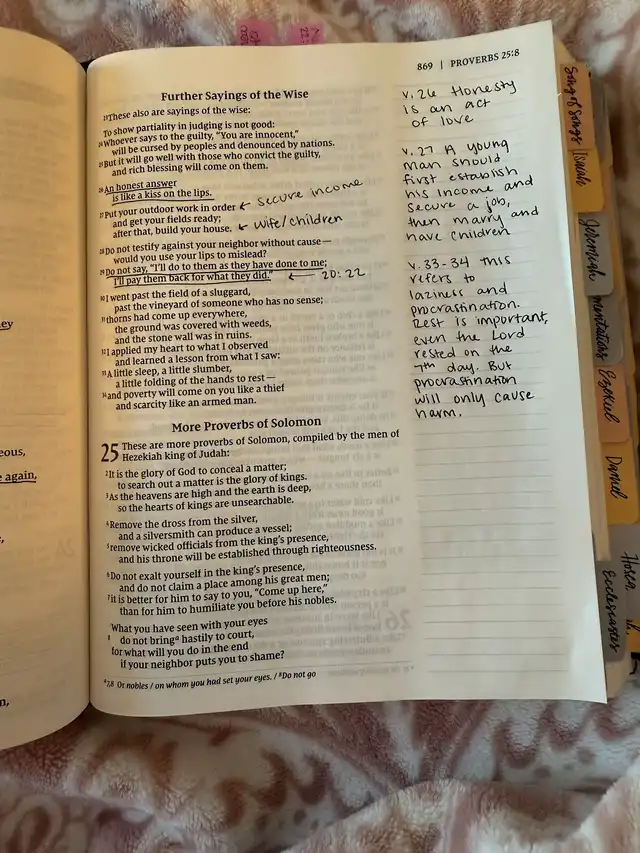 869 | PROVERBS 25:8
Further Sayings of the Wise
23These also are sayings of the wise:
To show partiality in judging is not good:
24Whoever says to the guilty, "You are innocent,"
will be cursed by peoples and denounced by nations.
25But it will go well with those who convict the guilty,
and rich blessing will come on them.
26An honest answer
is like a kiss on the lips.
27Put your outdoor work in order ← secure income
and get your fields ready;
after that, build your house. ← wife/children
28Do not testify against your neighbor without cause—
would you use your lips to mislead?
29Do not say, "I'll do to them as they have done to me;
I'll pay them back for what they did." ← 20:22
30I went past the field of a sluggard,
past the vineyard of someone who has no sense;
31thorns had come up everywhere,
the ground was covered with weeds,
and the stone wall was in ruins.
32I applied my heart to what I observed
and learned a lesson from what I saw:
33A little sleep, a little slumber,
a little folding of the hands to rest—
34and poverty will come on you like a thief
and scarcity like an armed man.
More Proverbs of Solomon
25 These are more proverbs of Solomon, compiled by the men of
Hezekiah king of Judah:
2It is the glory of God to conceal a matter;
to search out a matter is the glory of kings.
3As the heavens are high and the earth is deep,
so the hearts of kings are unsearchable.
4Remove the dross from the silver,
and a silversmith can produce a vessel;
5remove wicked officials from the king's presence,
and his throne will be established through righteousness.
6Do not exalt yourself in the king's presence,
and do not claim a place among his great men;
7it is better for him to say to you, "Come up here,"
than for him to humiliate you before his nobles.
What you have seen with your eyes
8 do not bringa hastily to court,
for what will you do in the end
if your neighbor puts you to shame?
a7,8 Or nobles / on whom you had set your eyes. / 8Do not go
v. 26 Honesty
is an act
of love
v. 27 A young
man should
first establish
his income and
secure a job,
then marry and
have children
v. 33-34 this
refers to
laziness and
procrastination.
Rest is important,
even the Lord
rested on the
7th day. But
procrastination
will only cause
harm.
Song of Songs
Isaiah
Jeremiah
mentations
Ezekiel
Daniel
Hosea
Ecclesiastes
eous,
e again,